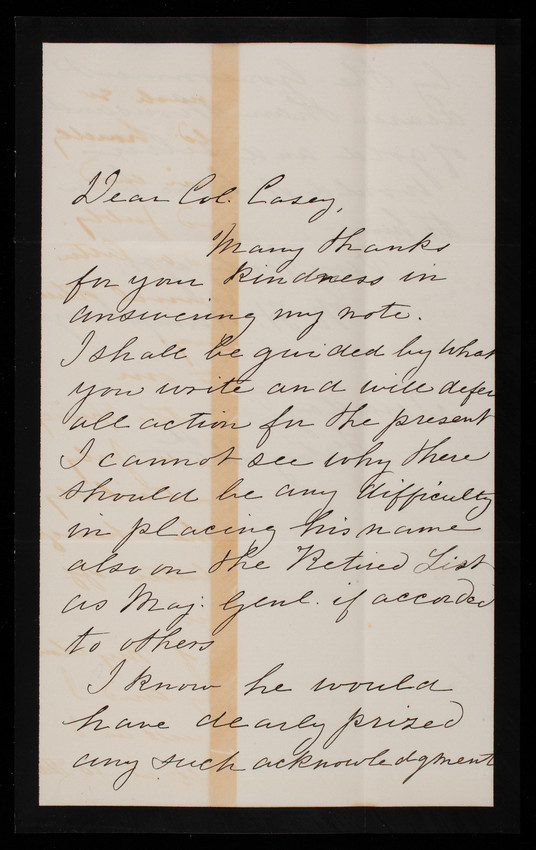 Dear Col. Casey,
Many thanks
for your kindness in
answering my note.
I shall be guided by what
you write and will defer
all action for the present
I cannot see why there
should be any difficulty
in placing his name
also on the Retired List
as Maj. Genl. if accorded
to others
I know he would
have dearly prized
any such acknowledgment